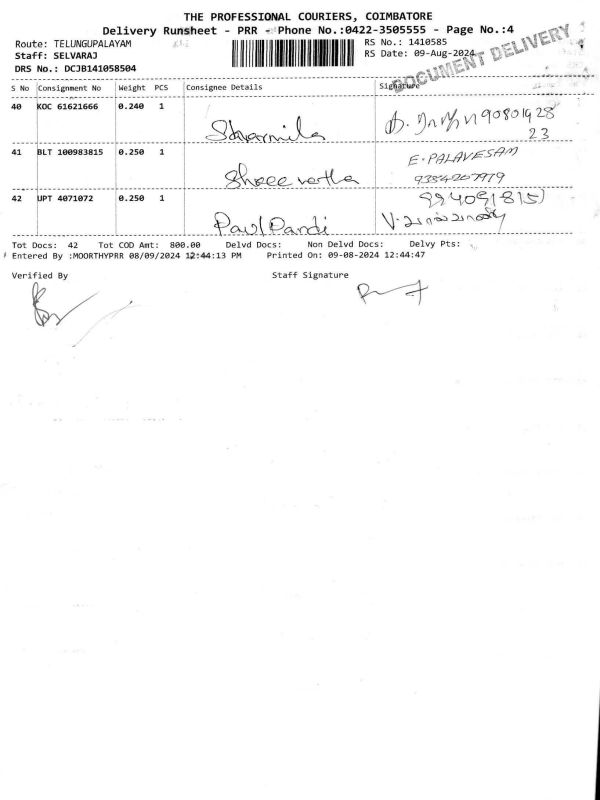 THE PROFESSIONAL COURIERS, COIMBATORE
Delivery Runsheet - PRR - Phone No.:0422-3505555 - Page No.:4
Route: TELUNGUPALAYAM
RS No.: 1410585
Staff: SELVARAJ
RS Date: 09-Aug-2024
DRS No.: DCJB141058504
DOCUMENT DELIVERY
S No Consignment No Weight PCS Consignee Details Signature
40 KOC 61621666 0.240 1
Sharmila
9080192823
41 BLT 100983815 0.250 1
E. PALAVESAM
Shree
9384207979
42 UPT 4071072 0.250 1
Paul Pandi
Tot Docs: 42 Tot COD Amt: 800.00 Delvd Docs: Non Delvd Docs: Delvy Pts:
Entered By :MOORTHYPRR 08/09/2024 12:44:13 PM Printed On: 09-08-2024 12:44:47
Verified By Staff Signature